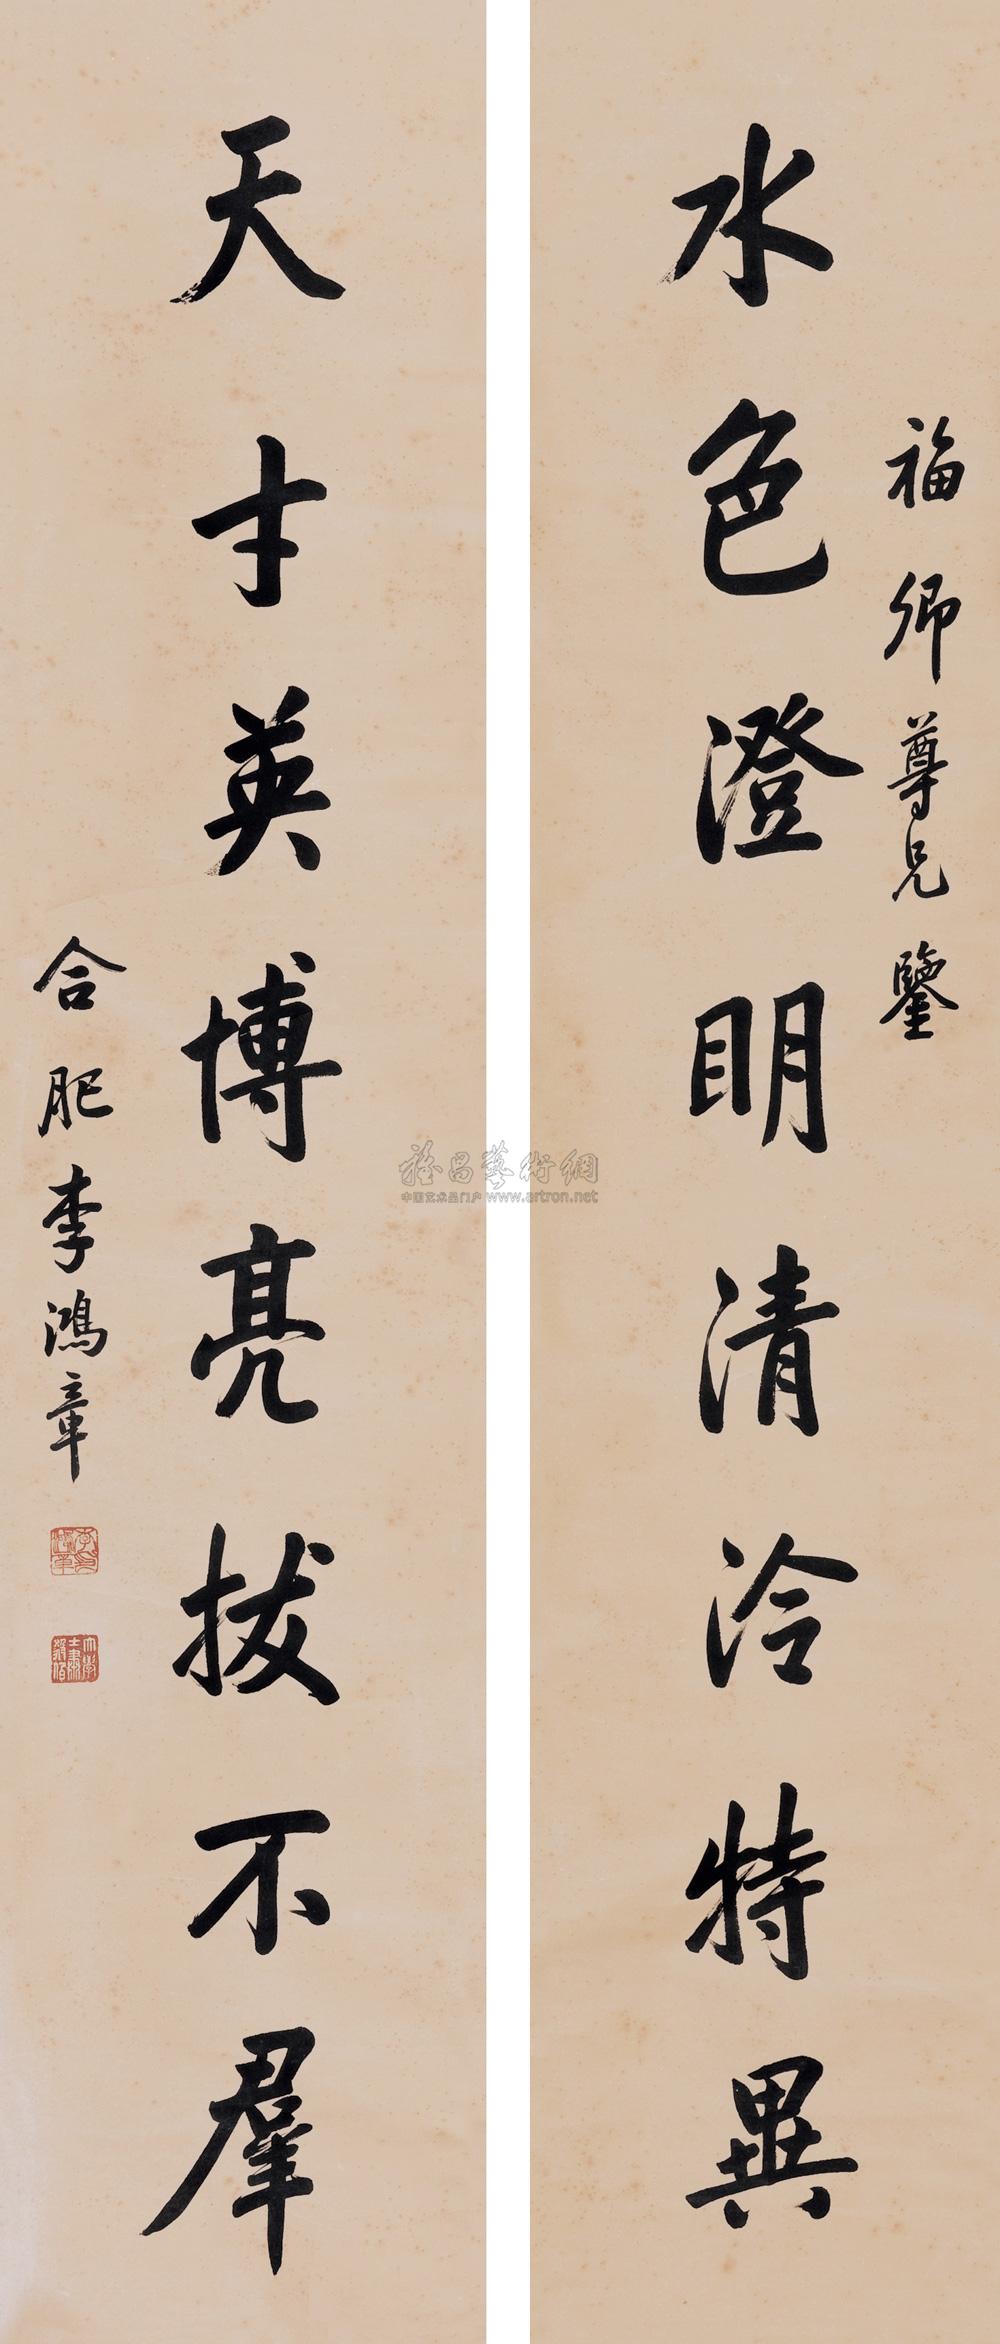 福卿尊兄鑒
水色澄明清泠特異
天才英博亮拔不羣
合肥李鴻章
雅昌藝術網
中国艺术品门户 www.artron.net